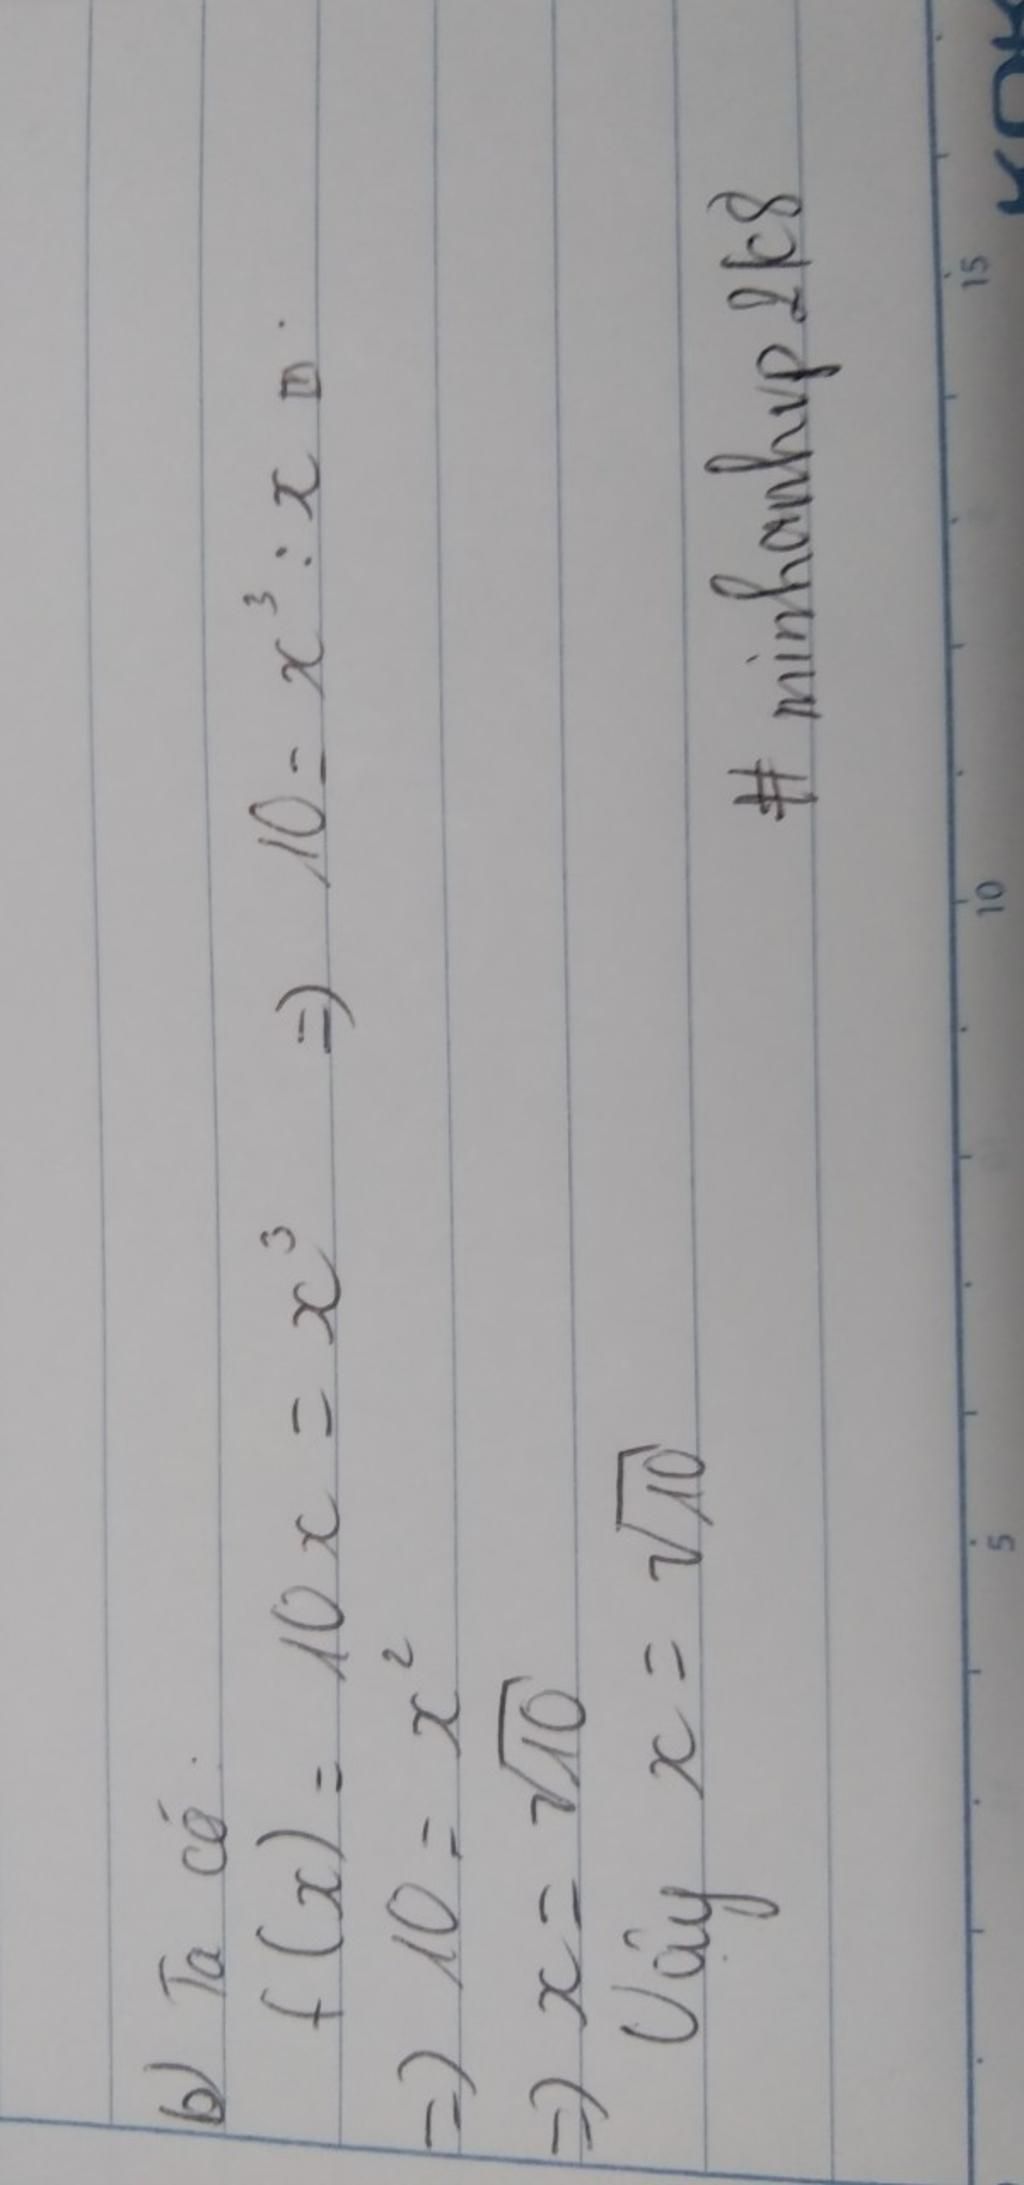 b) Ta có:
f(x) = 10x = x³ => 10 = x³ : x
=> 10 = x²
=> x = √10
Vây x = √10
# minhanhvp2k8
5 10 15